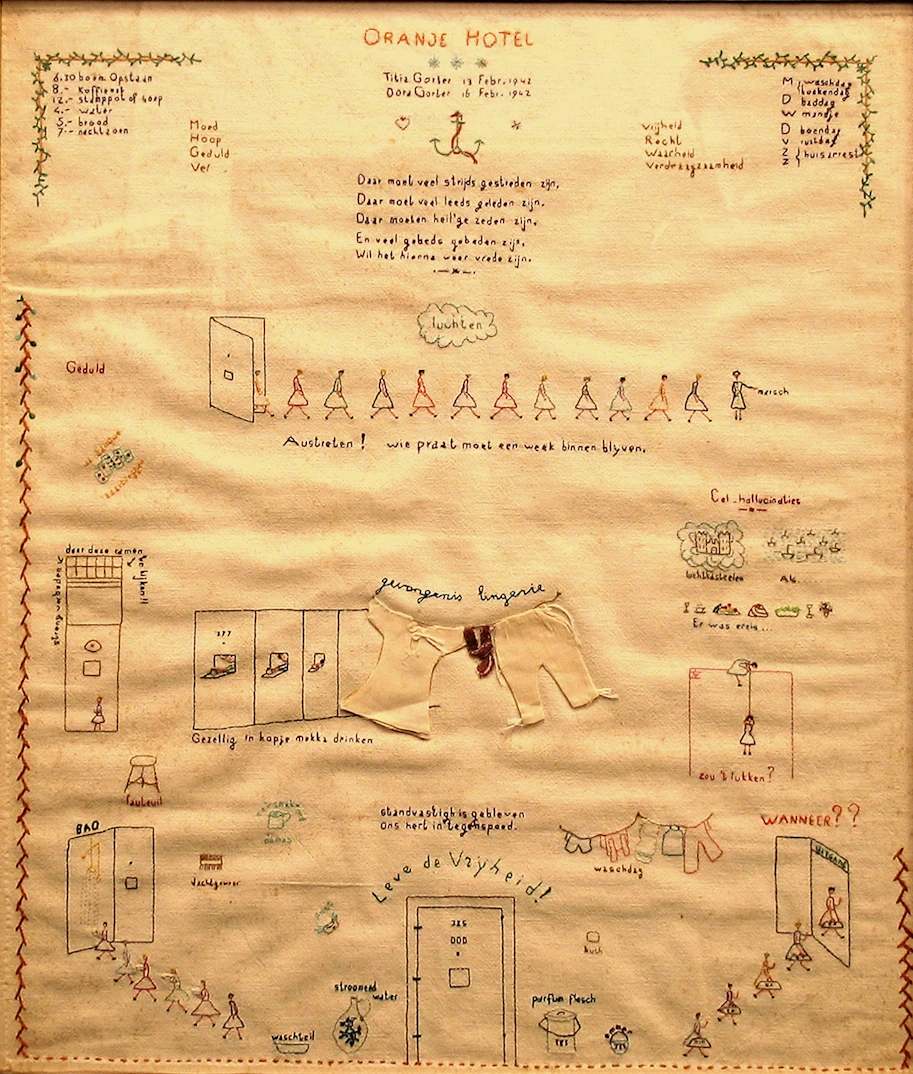 ORANJE HOTEL
Titia Gorter 13 Febr. 1942
Dora Gorter 16 Febr. 1942
6.30 boem Opstaan
8.- Koffieuit
12.- stamppot of soep
4.- water
5.- brood
7.- nachtzoen
Moed
Hoop
Geduld
Ver
Vrijheid
Recht
Waarheid
Verdraagzaamheid
M waschdag
D baddag
W mandje
D boendag
V rustdag
Z
Z huisarrest
Daar moet veel strijds gestreden zijn,
Daar moet veel leeds geleden zijn,
Daar moeten heil'ge zeden zijn,
En veel gebeds gebeden zijn,
Wil het hierna weer vrede zijn.
luchten
Geduld
marsch
Austreten! wie praat moet een week binnen blijven.
Cel-hallucinaties
luchtkasteelen
Als...
Er was eens...
door deze ramen
te kijken!!
streng verboden
gevangenis lingerie
377
Gezellig 'n kopje mokka drinken
zou 't lukken?
fauteuil
standvastig is gebleven
ons hert in tegenspoed.
waschdag
WANNEER??
UITGANG
BAD
Leve de Vrijheid!
385
000
stroomend
water
waschteil
parfum flesch
emmer